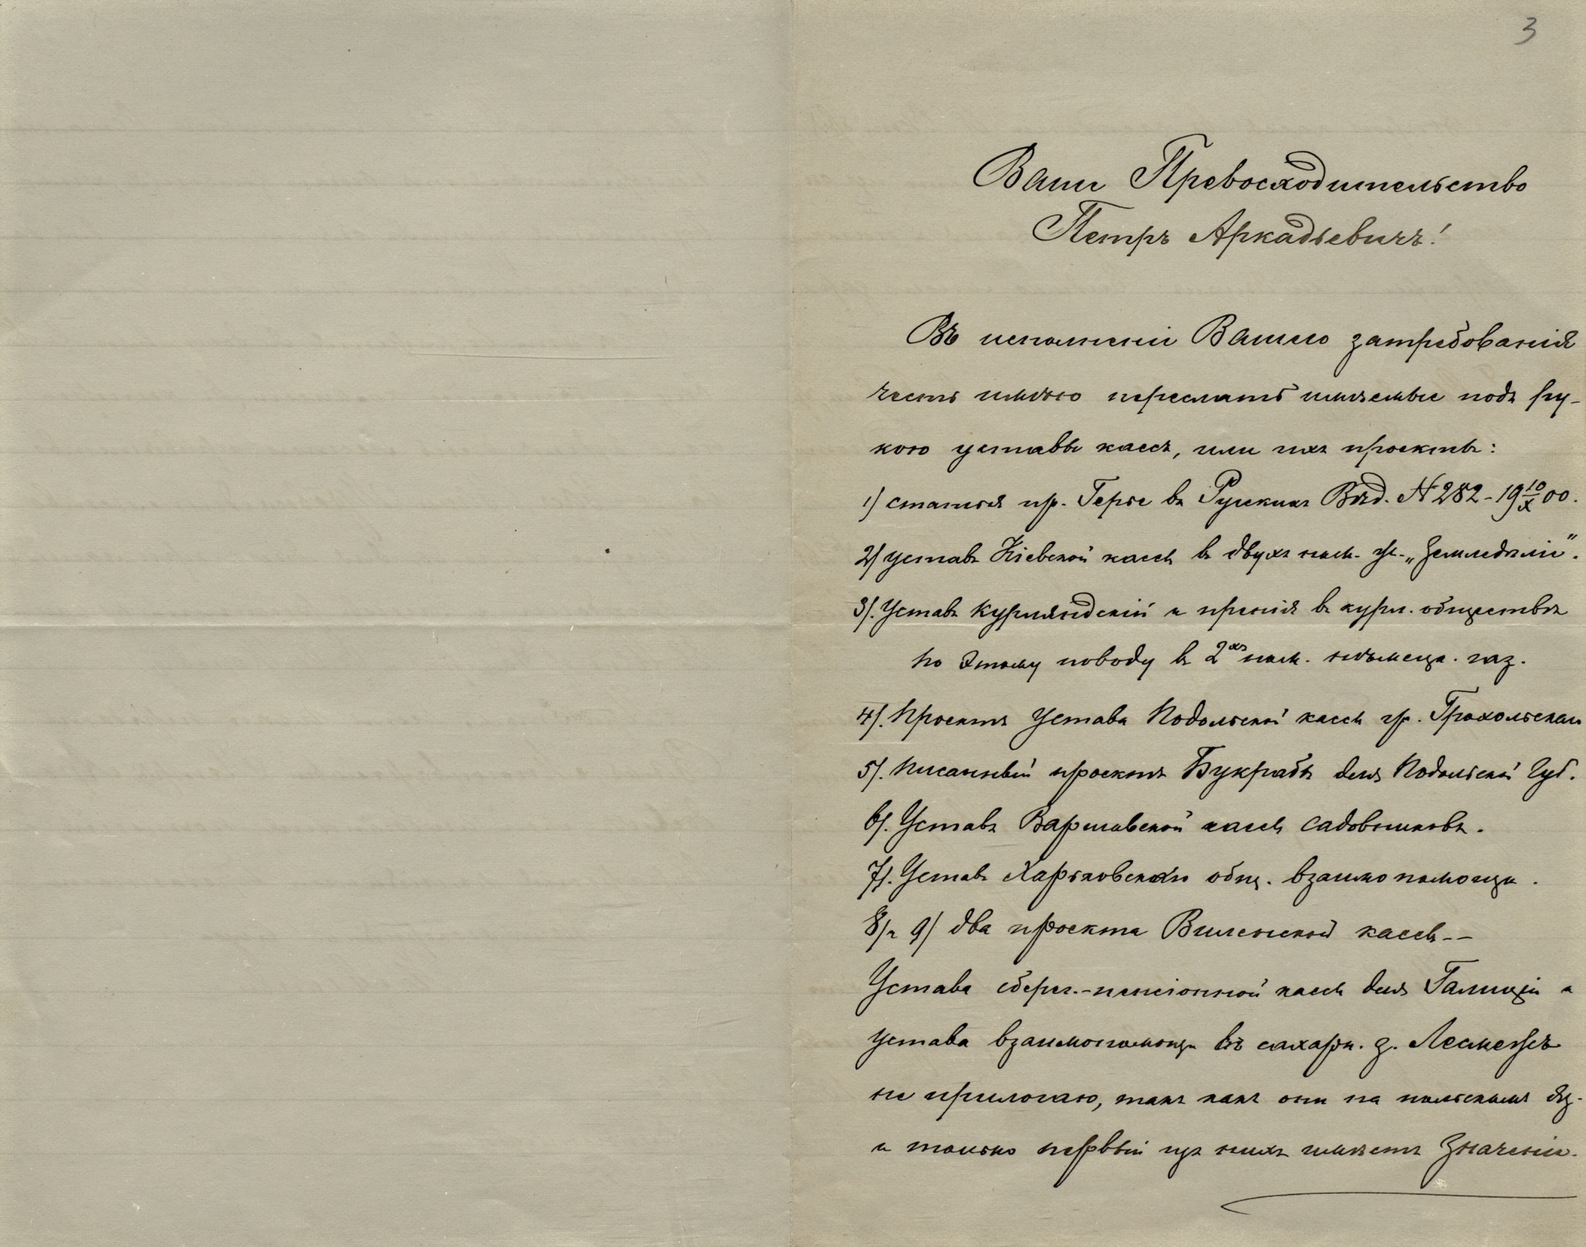 3
Ваше Превосходительство
Петръ Аркадьевичъ!
Въ исполненіи Вашего затребованія
честь имѣю переслать имѣемые подъ ру-
кою уставы кассъ, или ихъ проекты:
1) статья пр. Герье въ Русскихъ Вѣд. N 282-19 10/X 00.
2) уставъ Кіевской кассы въ двухъ экз. „Земледѣліе".
3). Уставъ Курляндскій и пренія въ курл. обществѣ
по этому поводу въ 2хъ нѣмецк. газ.
4). Проектъ Устава Подольской кассы гр. Грохольскаго
5). писанный проектъ Букрабы для Подольской Губ.
6). Уставъ Варшавской кассы садовниковъ.
7). Уставъ Харьковскаго общ. взаимопомощи.
8) и 9) два проекта Виленской кассы--
Устава сберег.-пенсіонной кассы для Галиціи и
устава взаимопомощи въ сахарн. з.
не прилогаю, такъ какъ они на польскомъ яз.
и только первый изъ нихъ имѣетъ значеніе.